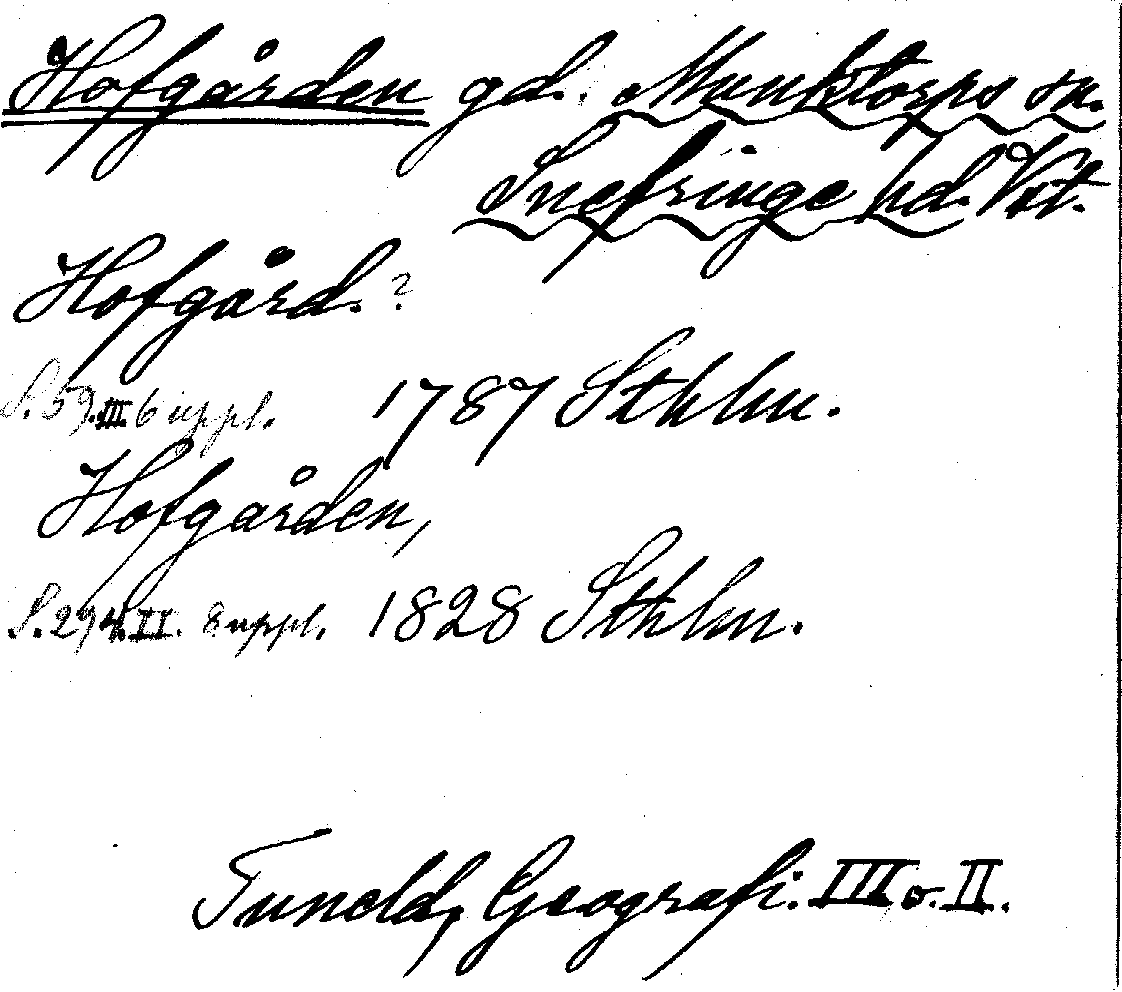 Hofgården gd. Munktorps sn.
Snefringe hd. Vst.
Hofgård.?
S. 59. III. 6 uppl. 1787 Sthlm.
Hofgården,
S. 294. II. 8 uppl. 1828 Sthlm.
Tuneld, Geografi. III o. II.